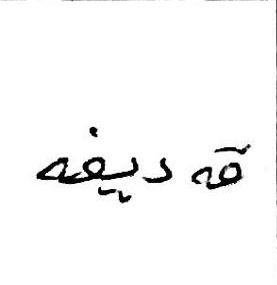 قەدیفە